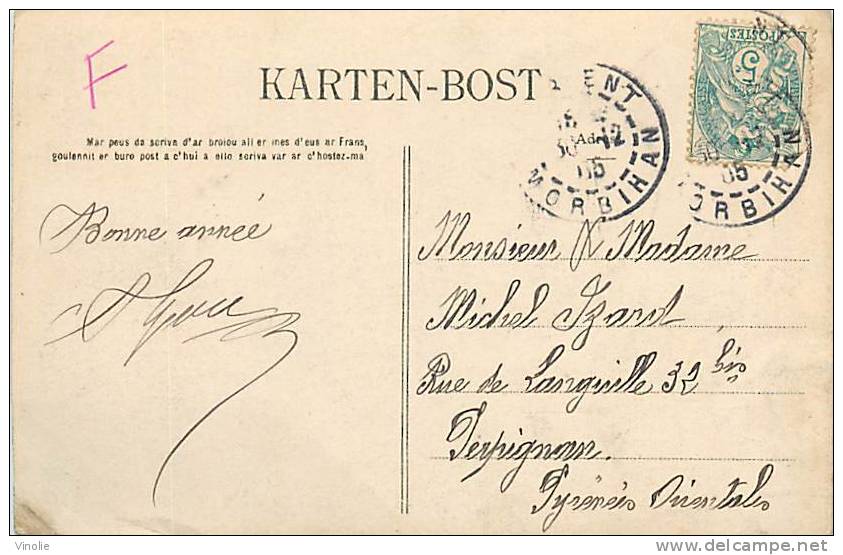 F
KARTEN-BOST
POSTES
5
ENT
30 -12
05
MORBIHAN
05
ORBIHAN
Mar peus da scriva d'ar broiou all er mes d'eus ar Frans,
goulennit er buro post a c'hui a ello scriva var ar c'hostez-ma
Bonne année
Monsieur & Madame
Michel Izard
Rue de Languille 32 bis
Perpignan
Pyrénées Orientales
Vinolie
www.delcampe.net